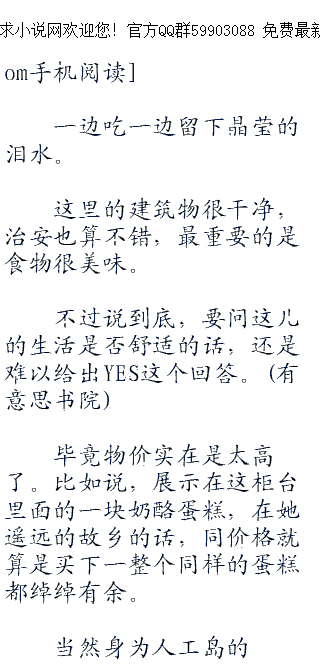 求小说网欢迎您！官方QQ群59903088 免费最新
om手机阅读]
一边吃一边留下晶莹的
泪水。
这里的建筑物很干净，
治安也算不错，最重要的是
食物很美味。
不过说到底，要问这儿
的生活是否舒适的话，还是
难以给出YES这个回答。(有
意思书院)
毕竟物价实在是太高
了。比如说，展示在这柜台
里面的一块奶酪蛋糕，在她
遥远的故乡的话，同价格就
算是买下一整个同样的蛋糕
都绰绰有余。
当然身为人工岛的